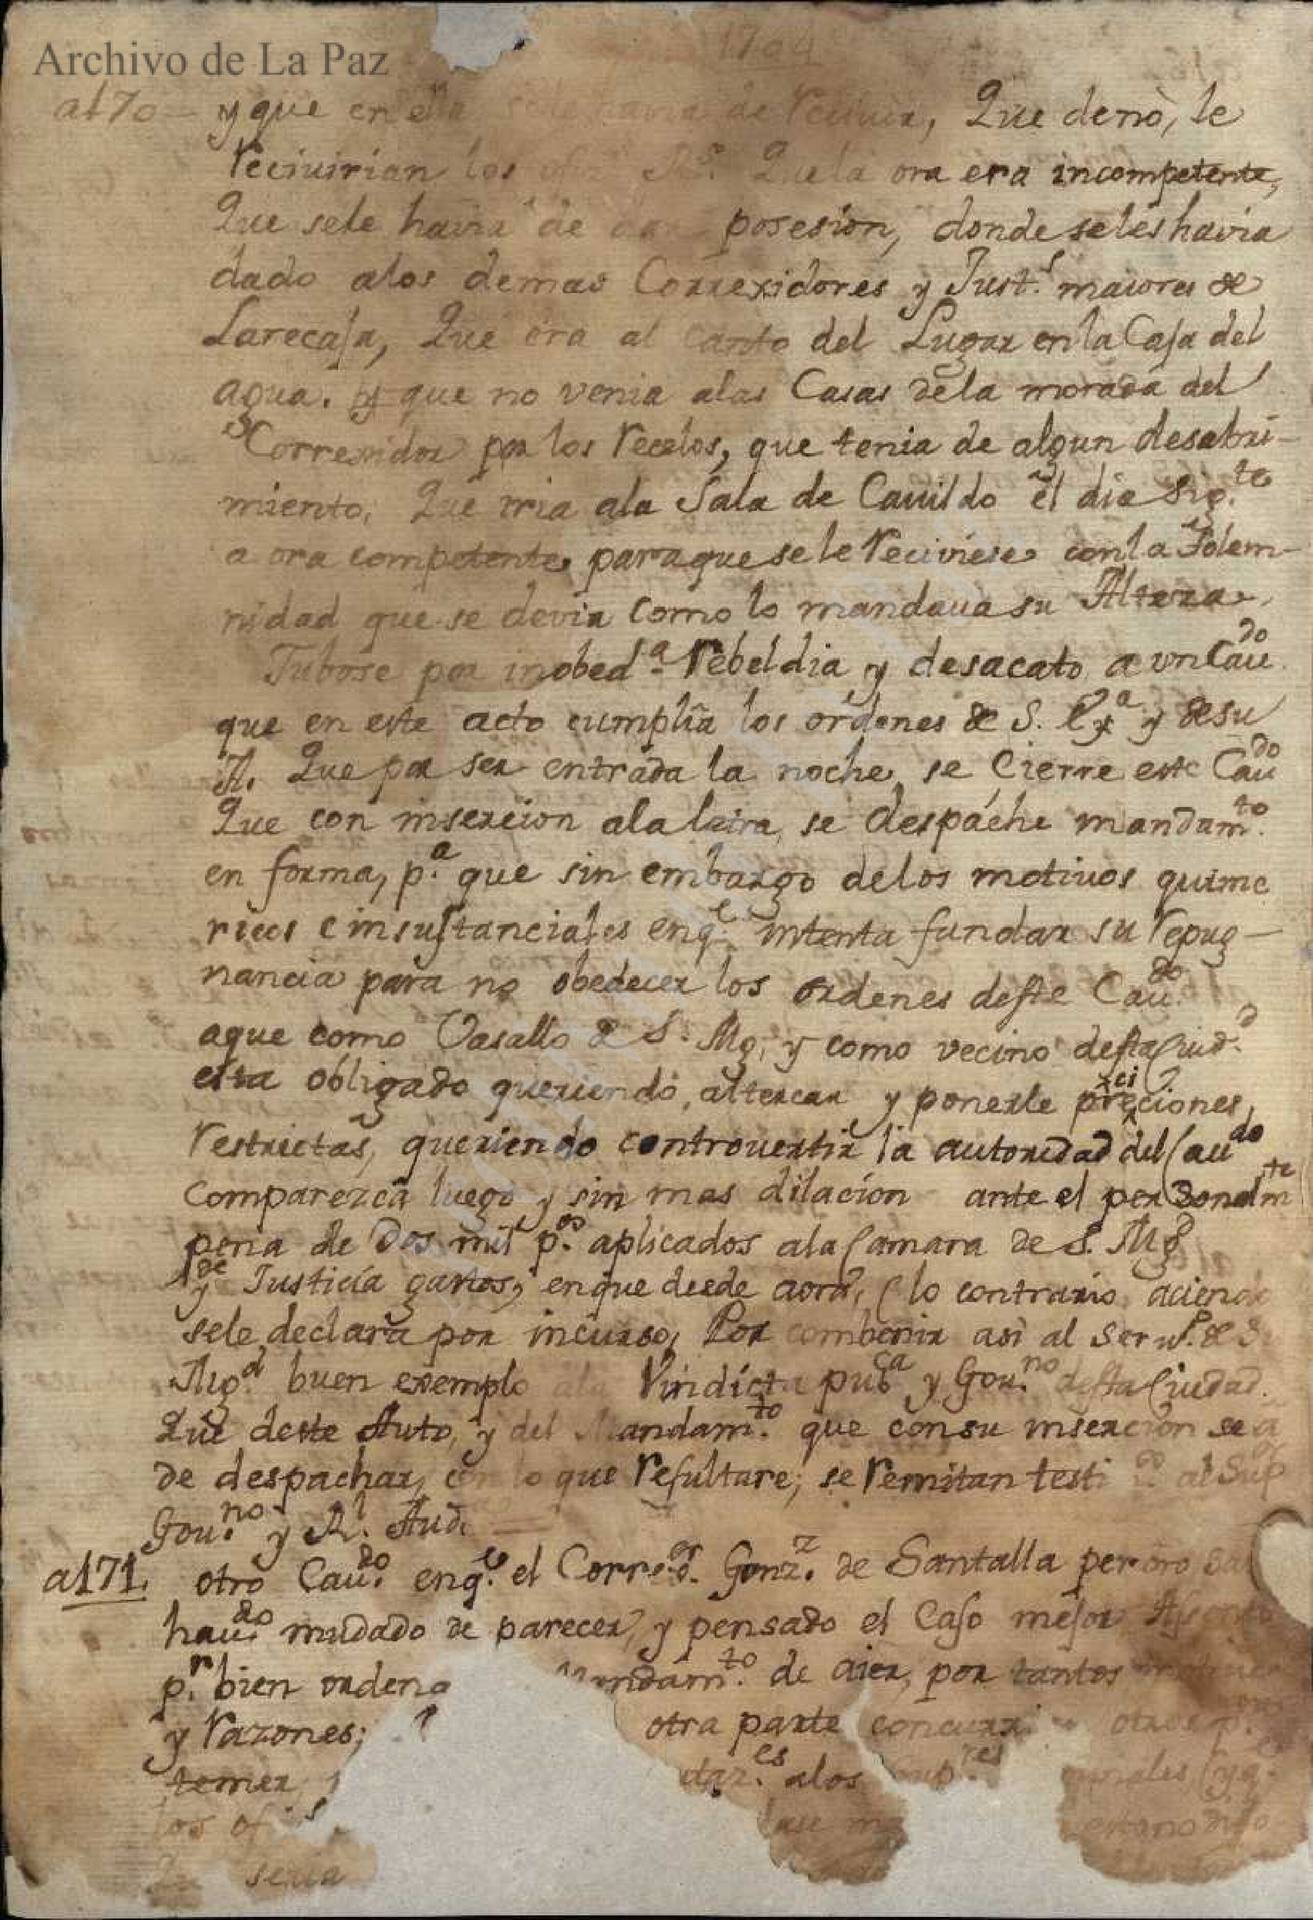 Archivo de La Paz
1704
al70 y que en ella de recivir, Que deno, le
recivirian los ofs. Rs. Que la ora era incompetente,
Que sele havia de dar posesion, donde seles havia
dado alos demas Correxidores y Just.s maiores de
Larecaja, Que era al canto del Lugar en la Casa del
agua. y que no venia alas Casas dela morada del
Correxidor por los recelos, que tenia de algun desabri-
miento, Que iria ala Sala de Cauildo el dia sig.te
a ora competente, paraque sele reciviese con la solem-
nidad que se devia como lo mandaua su Alteza.
Tubose por inobed.a rebeldia y desacato a un Cau.do
que en este acto cumplia los ordenes de S. Ex.a y de su
A. Que por ser entrada la noche, se Cierre este Cau.do
Que con insercion ala letra, se despache mandam.to
en forma, p.a que sin embargo delos motiuos quime
ricos e insustanciales enq.e intenta fundar su repug-
nancia para no obedecer los ordenes deste Cau.do
aque como Vasallo de S. Mg. y como vecino desta Ciud.d
esta obligado queriendo, altercar y ponerle preciciones,
restrictas, queriendo controuertir la autoridad del Cau.do
Comparezca luego y sin mas dilacion ante el personalm.te
pena de Dos mil p.os aplicados ala Camara de S. Mg.d
y de Justicia gastos, enque desde aora, (lo contrario aciendo
sele declara por incurso, Por combenir asi al seru.o de S.
Mg.d buen exemplo ala Vindicta pub.ca y Gou.no desta Ciudad.
Que deste Auto, y del Mandam.to que consu insercion se a
de despachar, con lo que resultare; se remitan testi al Sup
Gou.no y Rl. Aud.
al71. otro Cau.do enq.e el Corre.or D. Gonz.z de Santalla per oro
hau.do mudado de parecer, y pensado el Caso mejor
p.r bien ordeno Mandam.to de aier, por tantos
y razones; otra parte concurri otros
temer, alos Sup.res
los ofi.s
seria